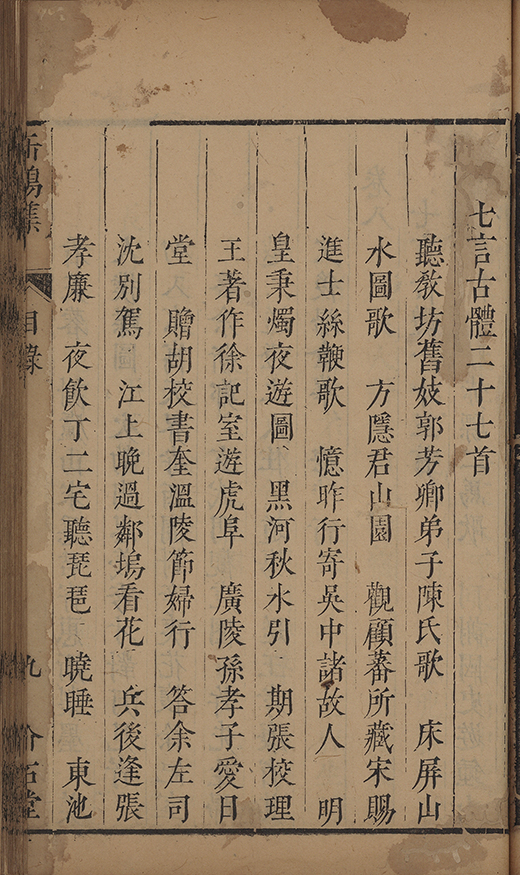 七言古體二十七首
聽敎坊舊妓郭芳卿弟子陳氏歌　床屏山
水圖歌　方隱君山園　觀顧蕃所藏宋賜
進士絲鞭歌　憶昨行寄吳中諸故人　明
皇秉燭夜遊圖　黑河秋水引　期張校理
王著作徐記室遊虎阜　廣陵孫孝子愛日
堂　贈胡校書奎溫陵節婦行　答余左司
沈別駕　江上晚過鄰塢看花　兵後逢張
孝廉　夜飲丁二宅聽琵琶　曉睡　東池
鳴集
目錄
九
石堂